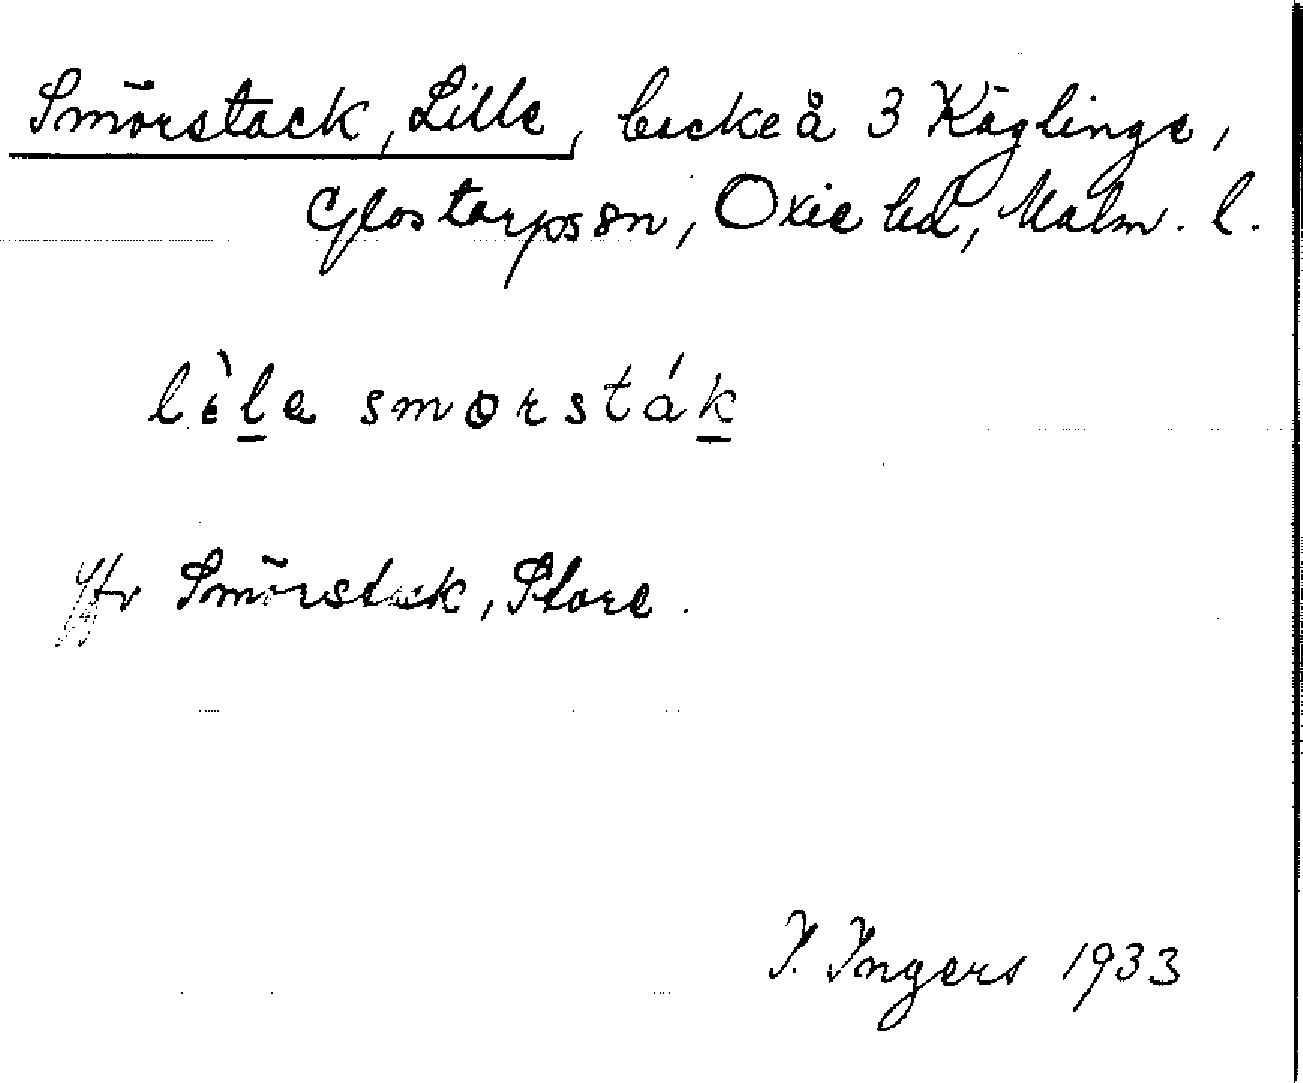 Smörstack, Lille, backe å 3 Käglinge,
Glostorps sn, Oxie hd, Malm. l.
lìle smorsták
Jfr Smörstack, Store.
I. Ingers 1933